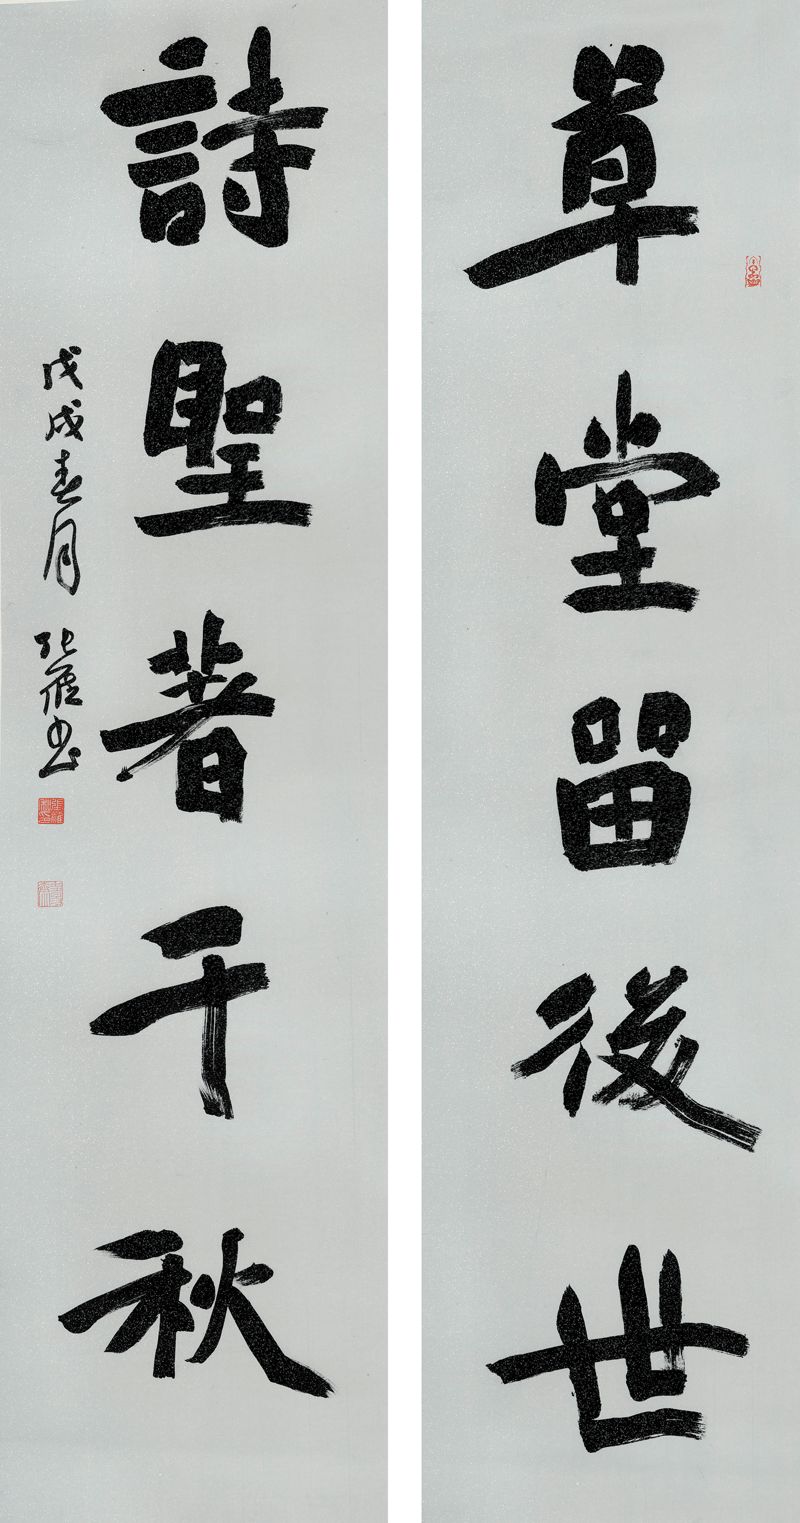 草堂留後世
詩聖著千秋
戊戌春月
書